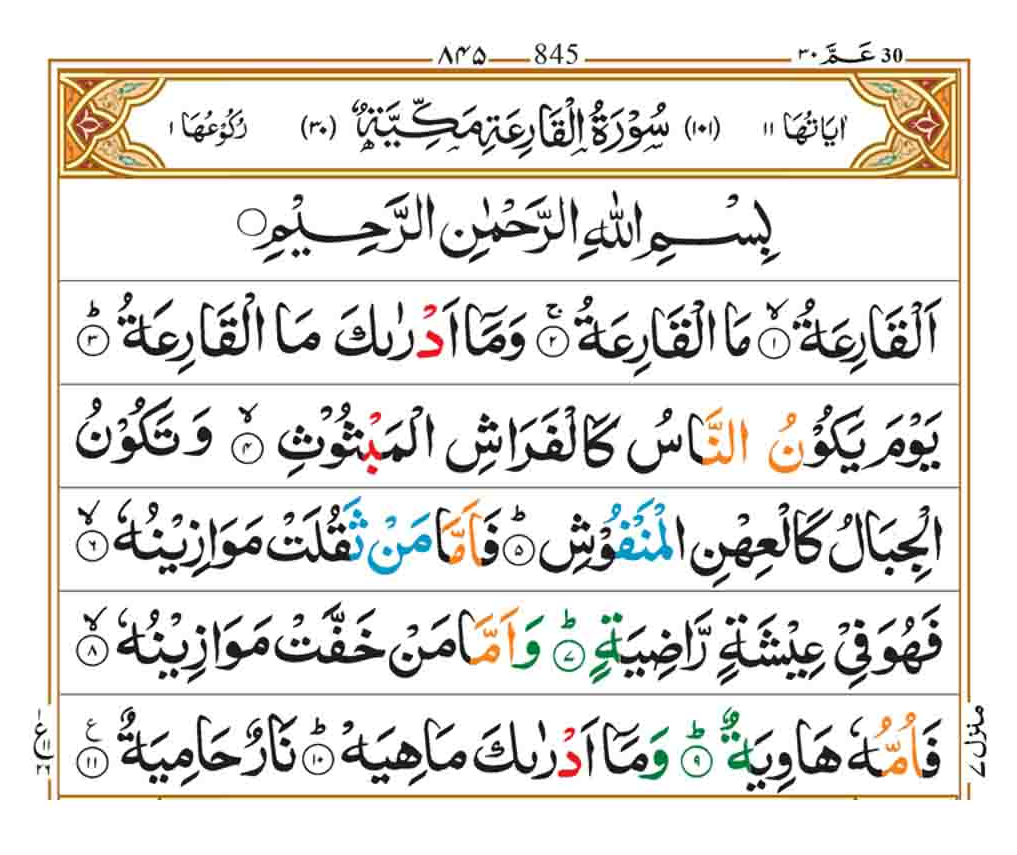 ٨٤٥ 845 30 عَـمَّ ٣٠
اٰيَاتُهَا ١١ (١٠١) سُوْرَةُ الْقَارِعَةِ مَكِّـيَّةٌ (٣٠) رُكُوْعُهَا ١
بِسْــمِ اللّٰهِ الرَّحْمٰنِ الرَّحِـيْمِ
اَلْقَارِعَةُ ۙ ١ مَا الْقَارِعَةُ ۚ ٢ وَمَاۤ اَدْرٰىكَ مَا الْقَارِعَةُ ؕ ٣
يَوْمَ يَكُوْنُ النَّاسُ كَالْفَرَاشِ الْمَبْثُوْثِ ۙ ٤ وَ تَكُوْنُ
الْجِبَالُ كَالْعِهْنِ الْمَنْفُوْشِ ؕ ٥ فَاَمَّا مَنْ ثَقُلَتْ مَوَازِيْنُهٗ ۙ ٦
فَهُوَ فِيْ عِيْشَةٍ رَّاضِيَةٍ ؕ ٧ وَاَمَّا مَنْ خَفَّتْ مَوَازِيْنُهٗ ۙ ٨
فَاُمُّهٗ هَاوِيَةٌ ؕ ٩ وَمَاۤ اَدْرٰىكَ مَاهِيَهْ ؕ ١٠ نَارٌ حَامِيَةٌ ١١ ع
منزل ٧